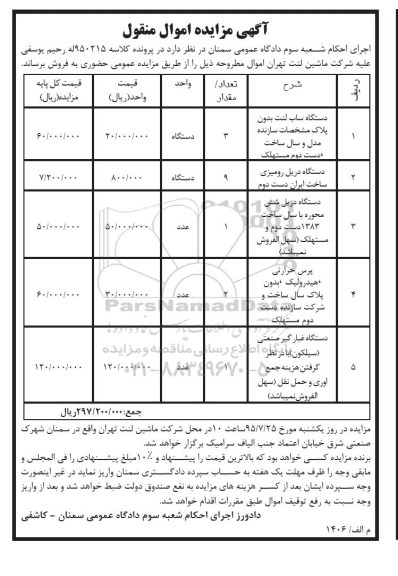 آگهی مزایده اموال منقول
اجرای احکام شعبه سوم دادگاه عمومی سمنان در نظر دارد در پرونده کلاسه ۹۵۰۲۱۵له رحیم یوسفی
علیه شرکت ماشین لنت تهران اموال مطروحه ذیل را از طریق مزایده عمومی حضوری به فروش برساند.
ردیف شرح تعداد/مقدار واحد قیمت واحد(ریال) قیمت کل پایه مزایده(ریال)
۱ دستگاه ساب لنت بدون پلاک مشخصات سازنده مدل و سال ساخت ،دست دوم مستهلک ۳ دستگاه ۲۰/۰۰۰/۰۰۰ ۶۰/۰۰۰/۰۰۰
۲ دستگاه دریل رومیزی ساخت ایران دست دوم ۹ دستگاه ۸۰۰/۰۰۰ ۷/۲۰۰/۰۰۰
۳ دستگاه دریل شش محوره با سال ساخت ۱۳۸۳دست دوم و مستهلک (سهل الفروش نمیباشد) ۱ عدد ۵۰/۰۰۰/۰۰۰ ۵۰/۰۰۰/۰۰۰
۴ پرس حرارتی ،هیدرولیک ،بدون پلاک سال ساخت و شرکت سازنده دست دوم مستهلک ۲ عدد ۳۰/۰۰۰/۰۰۰ ۶۰/۰۰۰/۰۰۰
۵ دستگاه غبار گیر صنعتی (سیلکون)با در نظر گرفتن هزینه جمع آوری و حمل نقل (سهل الفروش نمیباشد) ۱ عدد ۱۲۰/۰۰۰/۰۰۰ ۱۲۰/۰۰۰/۰۰۰
جمع:۲۹۷/۲۰۰/۰۰۰ریال
ParsNamadData
پایگاه اطلاع رسانی مناقصه و مزایده
۰۲۱-۸۸۳۴۹۶۷۰-۵
مزایده در روز یکشنبه مورخ ۹۵/۷/۲۵ساعت ۱۰در محل شرکت ماشین لنت تهران واقع در سمنان شهرک
صنعتی شرق خیابان اعتماد جنب الیاف سرامیک برگزار خواهد شد.
برنده مزایده کسی خواهد بود که بالاترین قیمت را پیشنهاد و ۱۰٪مبلغ پیشنهادی را فی المجلس و
مابقی وجه را ظرف مهلت یک هفته به حساب سپرده دادگستری سمنان واریز نماید در غیر اینصورت
وجه سپرده ایشان بعد از کسر هزینه های مزایده به نفع صندوق دولت ضبط خواهد شد و بعد از واریز
وجه نسبت به رفع توقیف اموال طبق مقررات اقدام خواهد شد.
دادورز اجرای احکام شعبه سوم دادگاه عمومی سمنان - کاشفی
م الف/ ۱۴۰۶